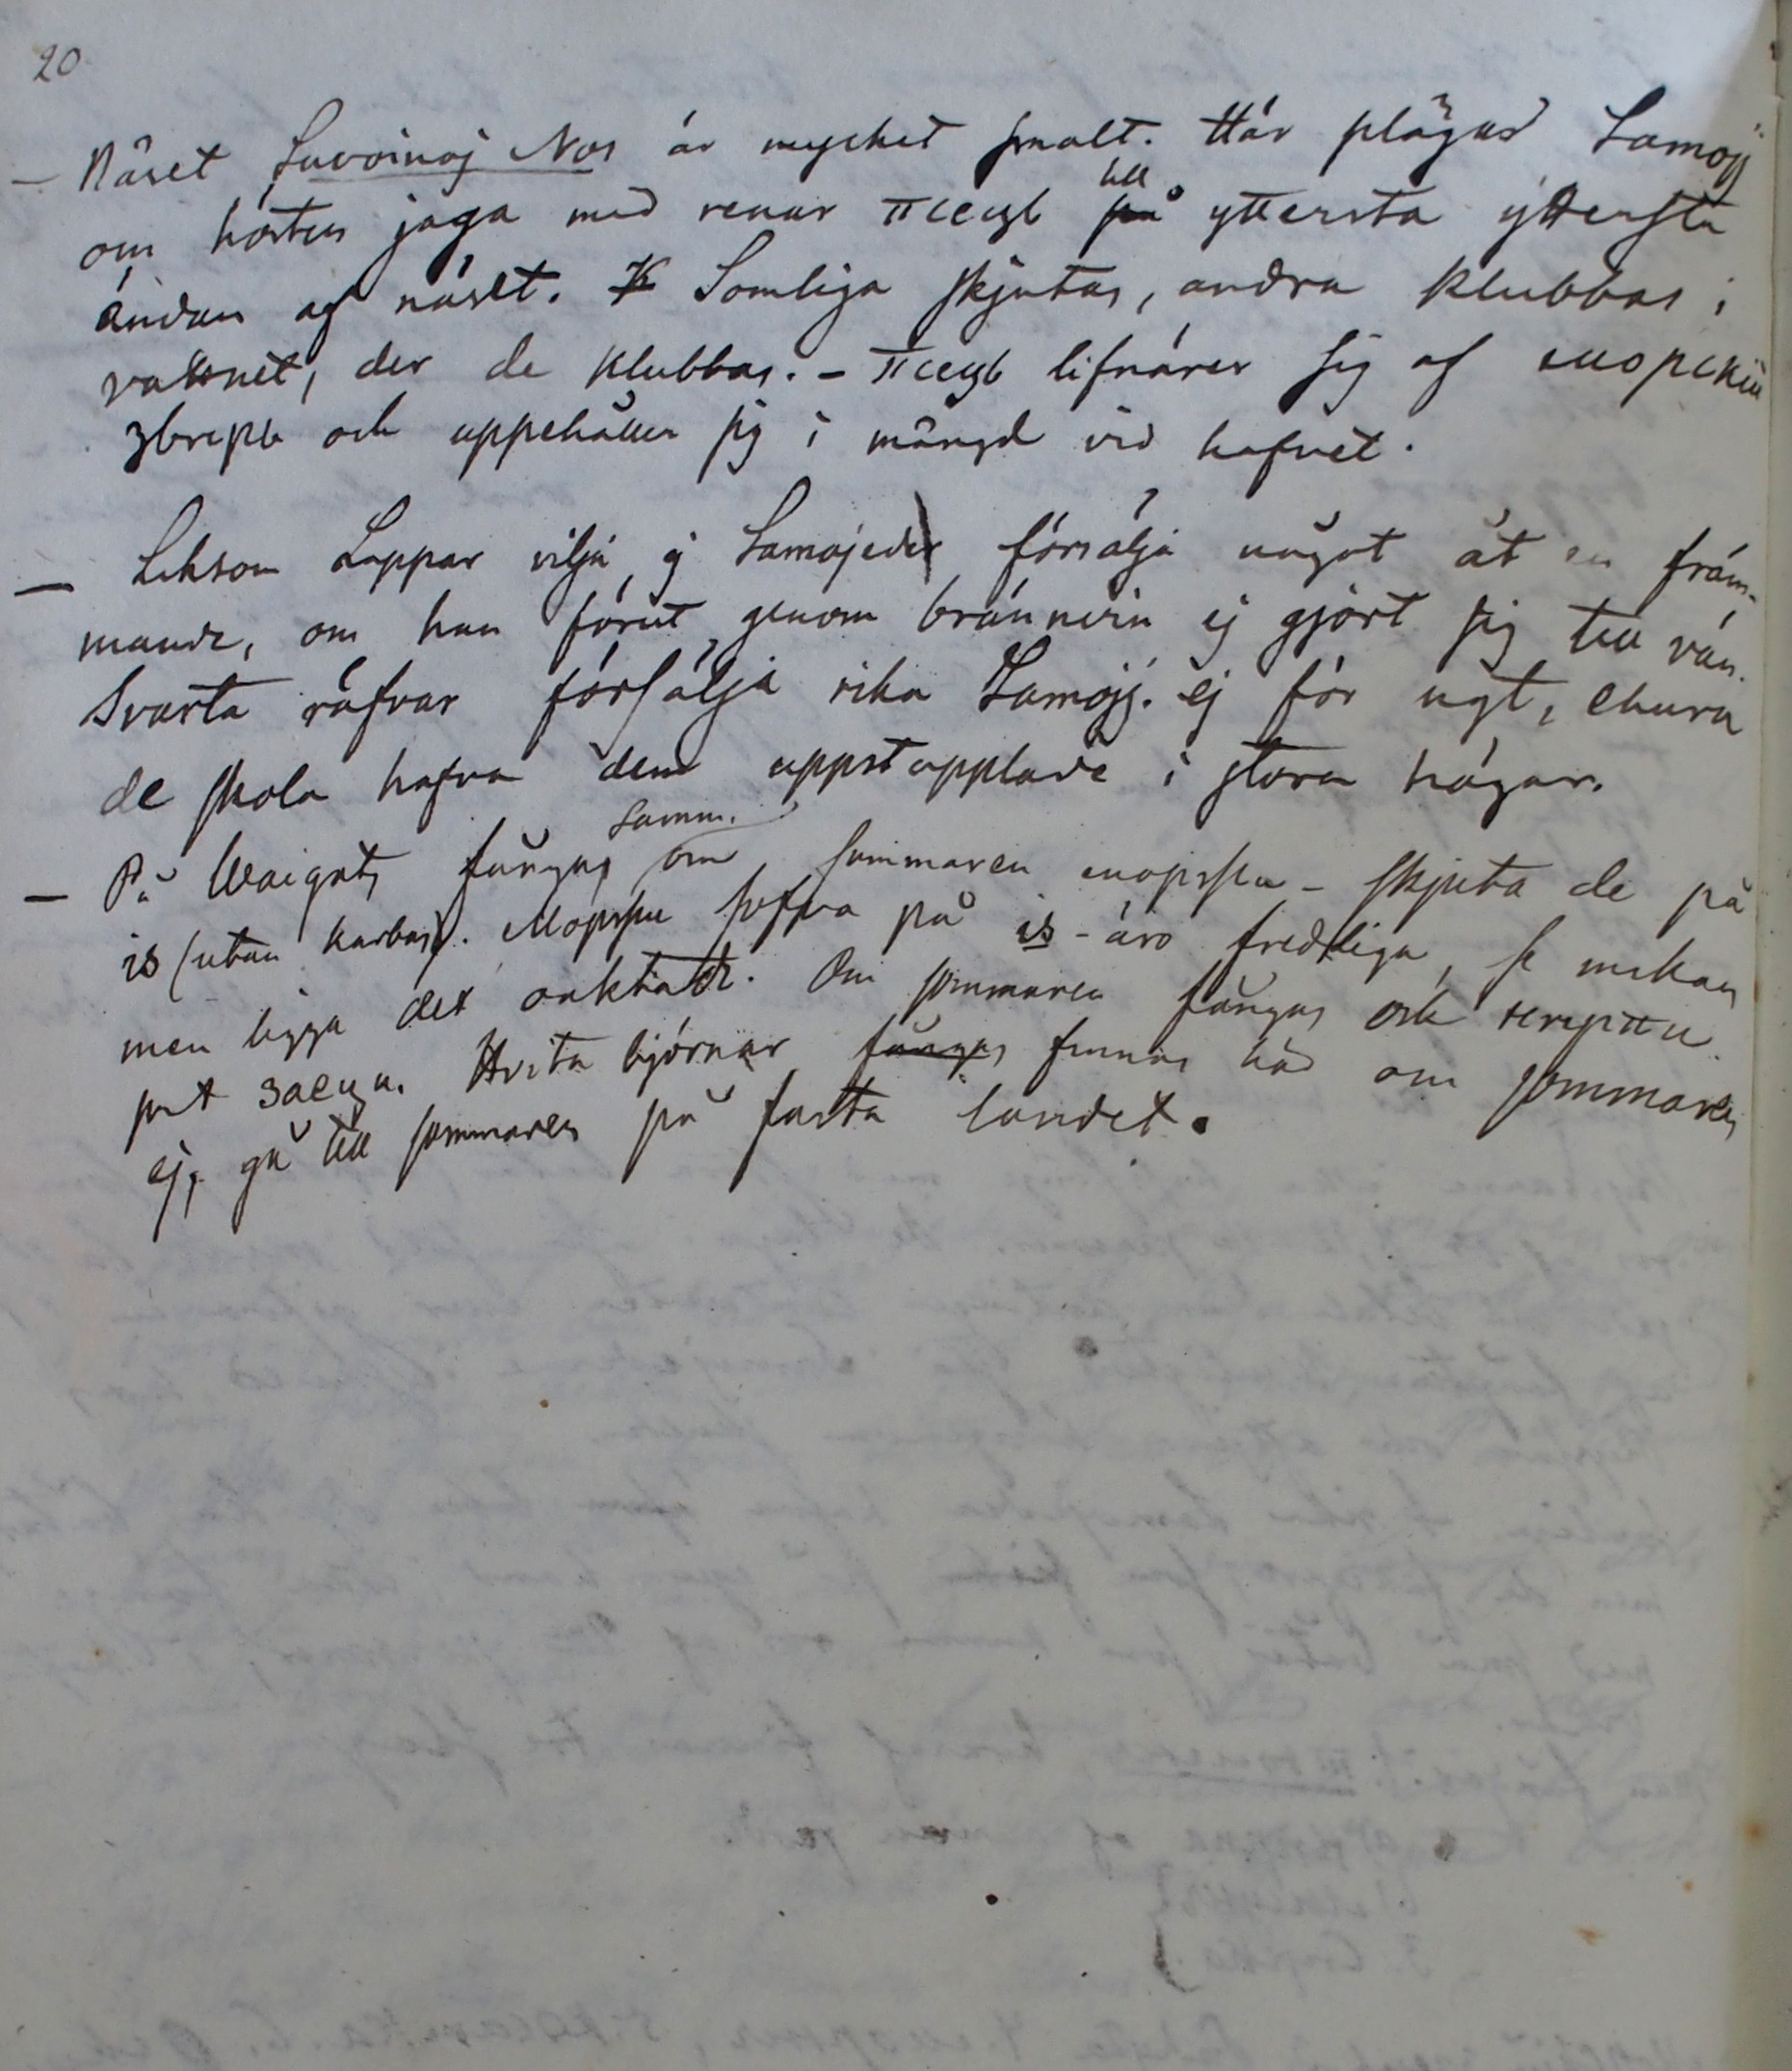 20
— Näset Suvoinoj Nos är mycket smalt. Här pläga Samojj
om hösten jaga med renar песцъ till yttersta yttersta
ändan af näset. Somliga skjutas, andra klubbas i
vattnet, der de klubbas. – песцъ lifnärer sig af морскій
звѣрь och uppehåller sig i mängd vid hafvet.
— Liksom Lappar vilja ej Samojeder försälja något åt en främ-
mande, om han förut genom brännvin ej gjort sig till vän.
Svarta räfvar försälja rika Samojj. ej för ngt, ehuru
de skola hafva dem uppstapplade i stora högar.
Samm.
— På Waigats fångas om sommaren моржи – skjuta de på
is (utan karbas). Моржи sofva på is – äro fredliga,
men ligga det. Om sommaren fångas och нерпы
samt заецъ. Hvita björnar fångas finnas här om sommaren
ej, gå till sommaren på fasta landet.